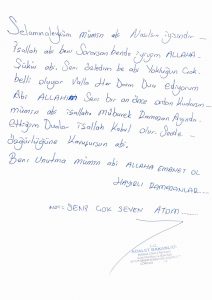 Selamnaleyküm mümin abi Nasılsın iyisindir --
İsallah abi beni Sorarsan bende iyiyim ALLAHA
Şükür abi. Seni Zatedım be abi Yokluğun Çok
belli oluyor Valla Her Daim Dua Ediyorum
Abi ALLAHIM Seni bir an önce ordan Kurtarsın
mümin abi isallahı Mübarek Ramazan Ayında
ettiğim Dualar isallah Kabul olur. Sende
özgürlüğüne Kavuşursun abi.
Beni Unutma mümin abi ALLAHA EMANET OL
HAYIRLI RAMAZANLAR ----
NOT= SENİ ÇOK SEVEN ATOM .......